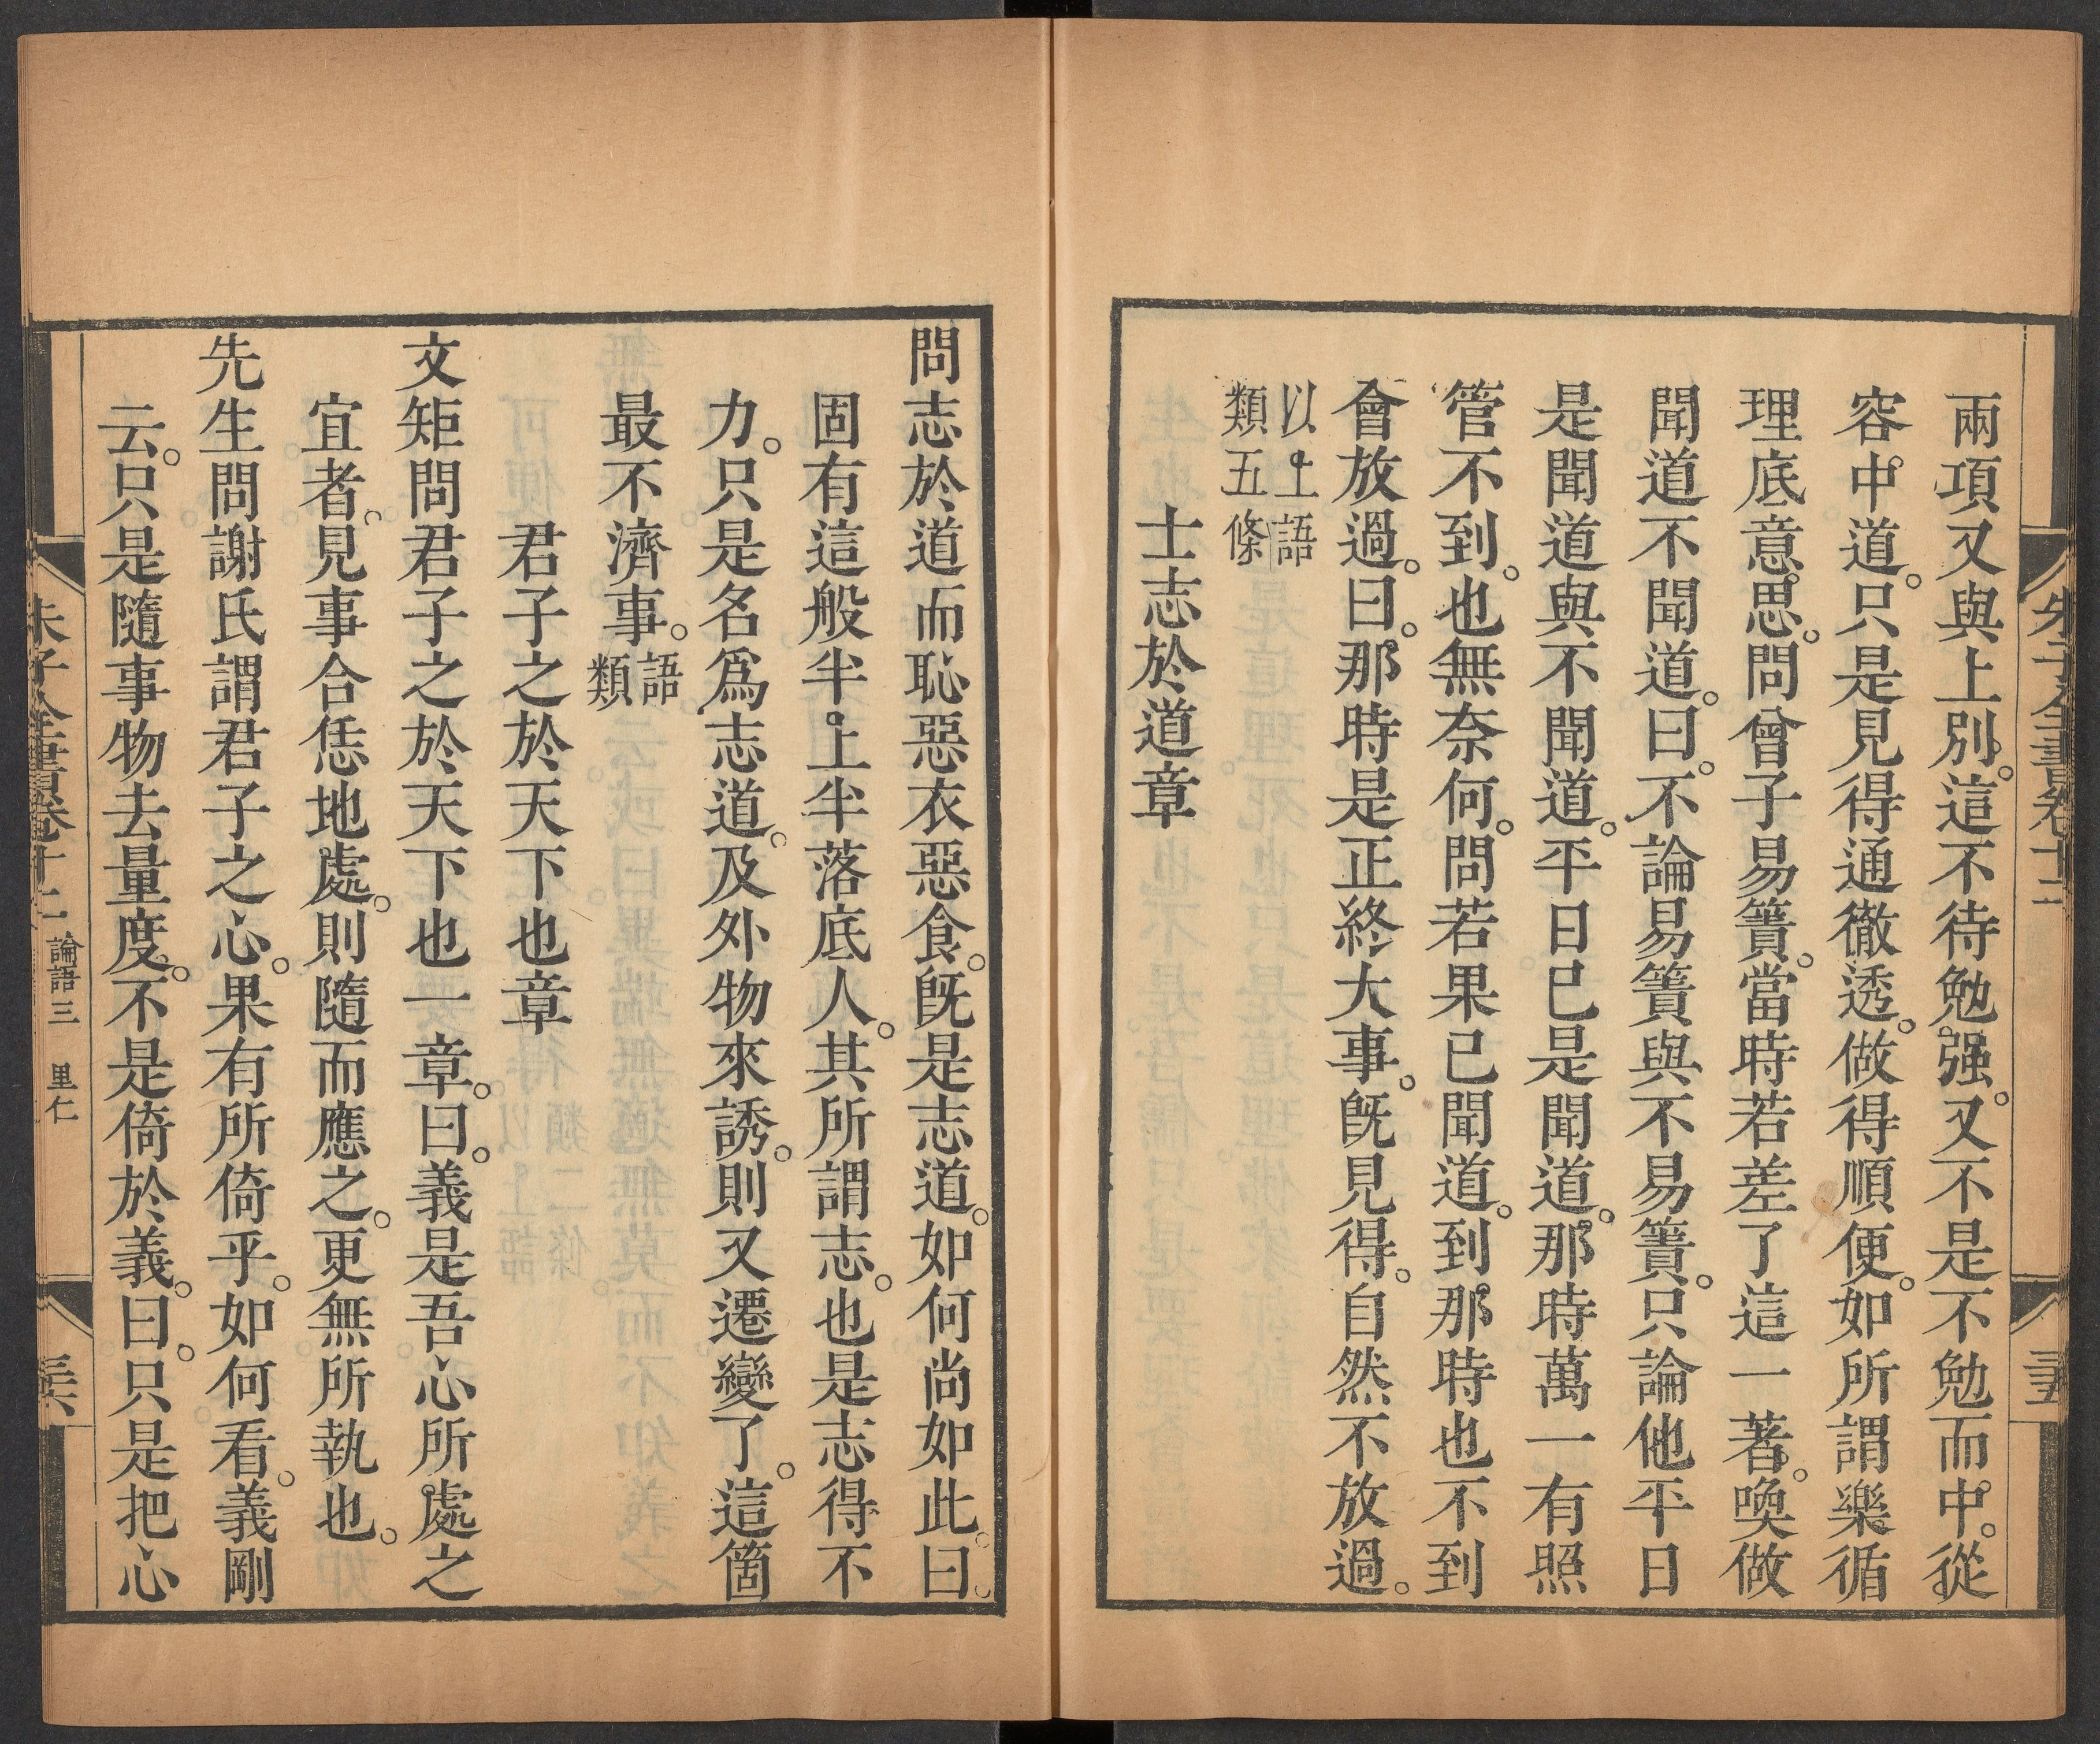 兩項又與上別。這不待勉强。又不是不勉而中。從
容中道。只是見得通徹透。做得順便。如所謂樂循
理底意思。問曾子易簀。當時若差了這一著。喚做
聞道不聞道。曰。不論易簀與不易簀。只論他平日
是聞道與不聞道。平日已是聞道。那時萬一有照
管不到。也無奈何。問若果已聞道。到那時也不到
會放過。曰。那時是正終大事。旣見得。自然不放過。
以上語
類五條
士志於道章
朱子全書卷十二
三五
問志於道而恥惡衣惡食。旣是志道。如何尚如此。曰。
固有這般半上半落底人。其所謂志。也是志得不
力。只是名爲志道。及外物來誘。則又遷變了。這箇
最不濟事。語
類
君子之於天下也章
文矩問君子之於天下也一章。曰。義是吾心所處之
宜者。見事合恁地處。則隨而應之。更無所執也。
先生問謝氏謂君子之心。果有所倚乎。如何看。義剛
云。只是隨事物去量度。不是倚於義。曰。只是把心
朱子全書卷十二 論語三 里仁
三六